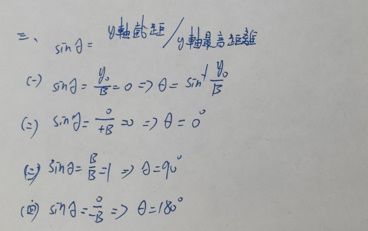 三、 sinθ = y軸截距/y軸最高距離
(一) sinθ = y₀/B = 0 => θ = sin⁻¹ y₀/B
(二) sinθ = 0/+B => θ = 0°
(三) sinθ = B/B = 1 => θ = 90°
(四) sinθ = 0/-B => θ = 180°